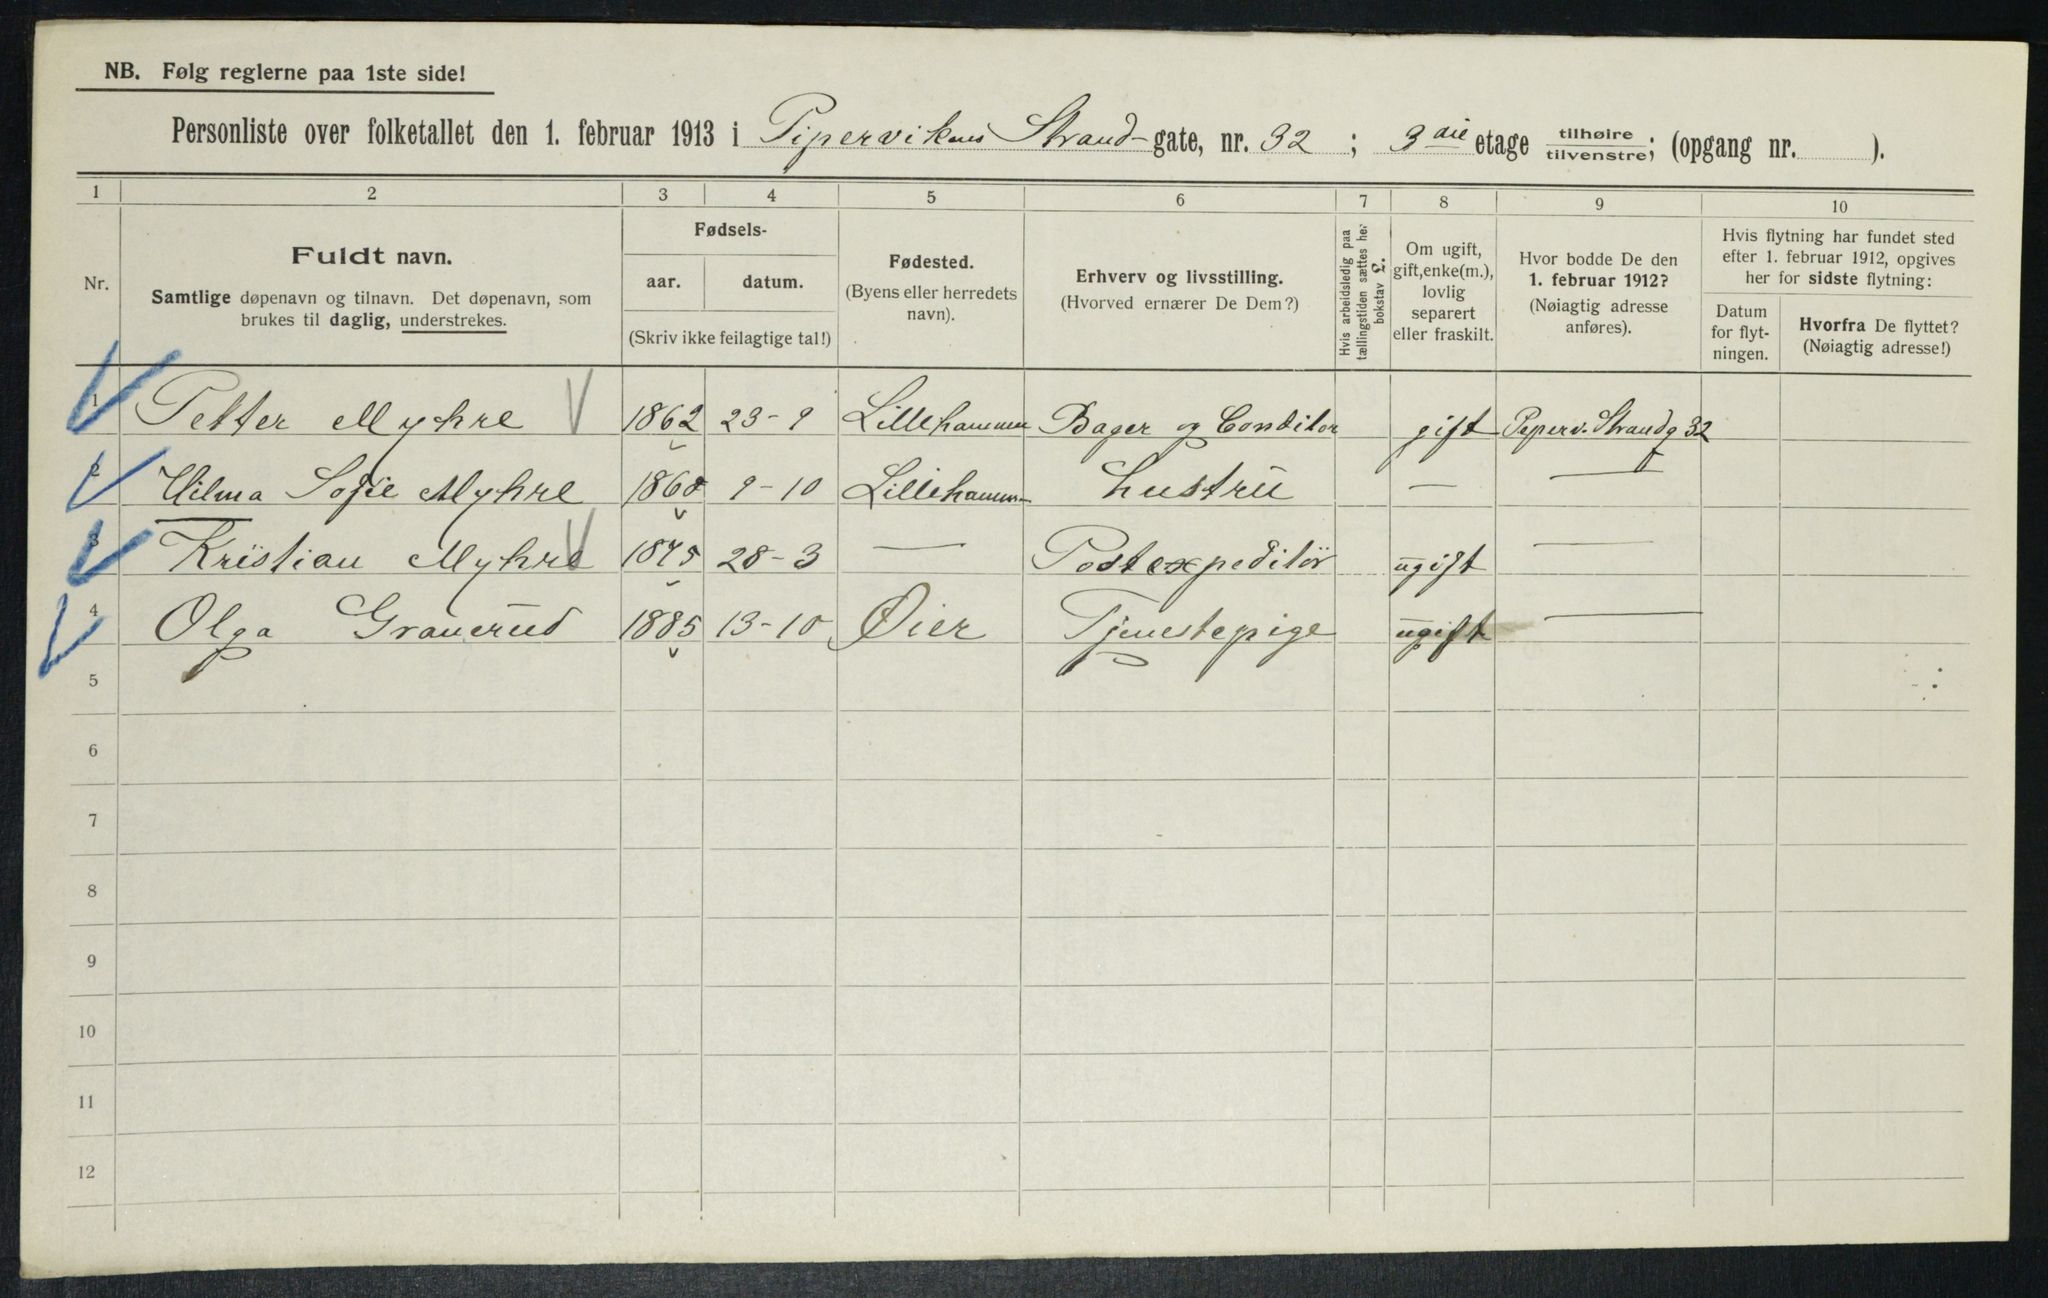 NB. Følg reglerne paa 1ste side!
Personliste over folketallet den 1. februar 1913 i Pipervikens Strand-gate, nr. 32 ; 3die etage tilhøire/tilvenstre; (opgang nr. ).
1 2 3 4 5 6 7 8 9 10
Nr.
Fuldt navn.
Samtlige døpenavn og tilnavn. Det døpenavn, som
brukes til daglig, understrekes.
Fødsels-
aar. datum.
(Skriv ikke feilagtige tal!)
Fødested.
(Byens eller herredets
navn).
Erhverv og livsstilling.
(Hvorved ernærer De Dem?)
Hvis arbeidsledig paa
tællingstiden sættes her
bokstav L.
Om ugift,
gift, enke(m.),
lovlig
separert
eller fraskilt.
Hvor bodde De den
1. februar 1912?
(Nøiagtig adresse
anføres).
Hvis flytning har fundet sted
efter 1. februar 1912, opgives
her for sidste flytning:
Datum
for flyt-
ningen.
Hvorfra De flyttet?
(Nøiagtig adresse!)
1 Petter Myhre 1862 23-9 Lillehammer Bager og Conditor gift Piperv. Strandg 32
2 Wilma Sofie Myhre 1860 9-10 Lillehamm- Hustru — —
3 Kristian Myhre 1875 28-3 — Postexpeditör ugift —
4 Olga Grauerud 1885 13-10 Øier Tjenestepige ugift —
5
6
7
8
9
10
11
12